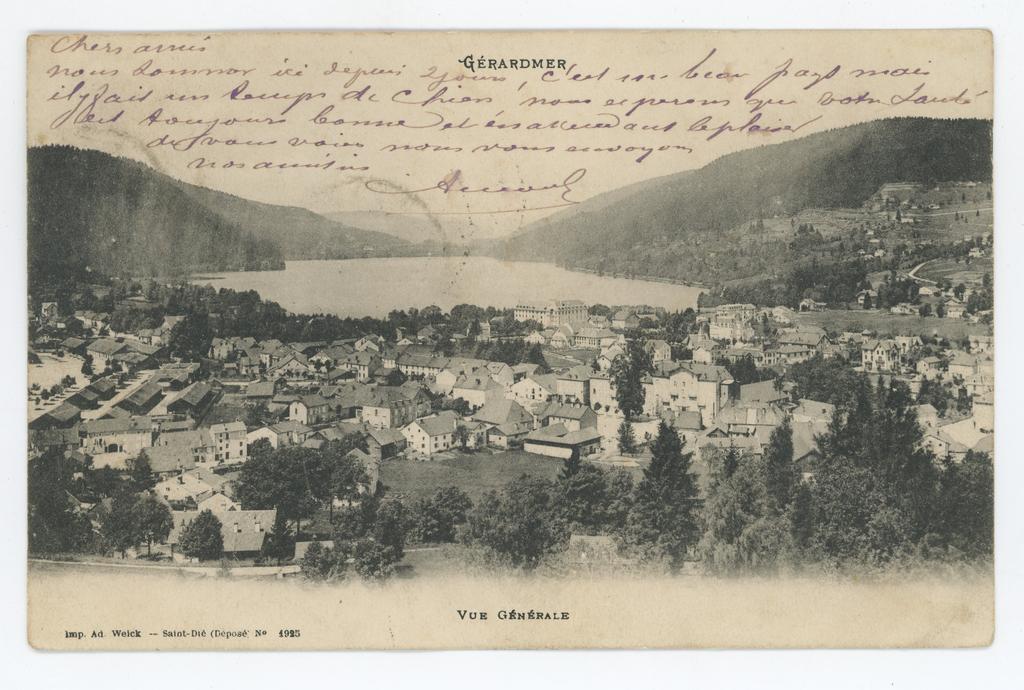 Chers amis
GÉRARDMER
nous sommes ici depuis 2 jours, c'est un beau pays mais
il y fait un temps de chien, nous esperons que votre Santé
est toujours bonne et en attendant le plaisir
de vous voir nous vous envoyons
nos amitiés
VUE GÉNÉRALE
Imp. Ad. Weick -- Saint-Dié (Déposé) No 4925